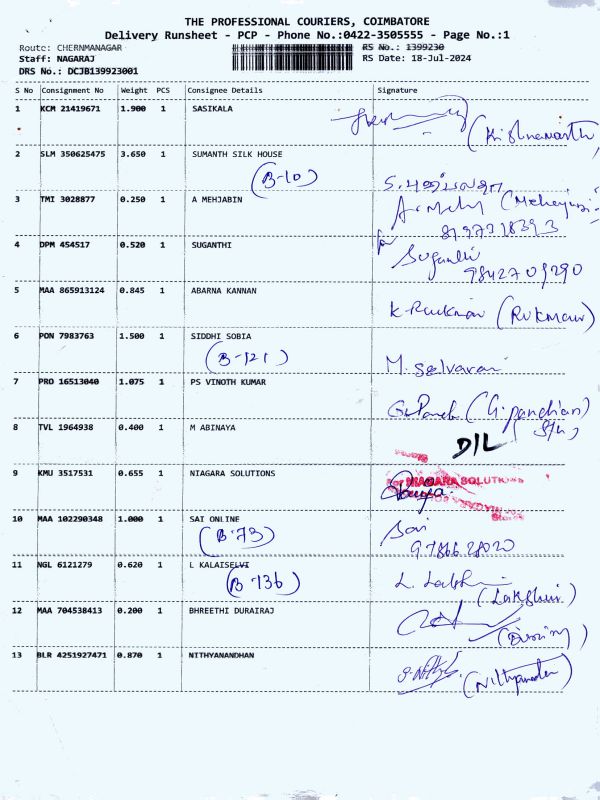 THE PROFESSIONAL COURIERS, COIMBATORE
Delivery Runsheet - PCP - Phone No.:0422-3505555 - Page No.:1
Route: CHERMANAGAR
RS No.: 1399230
Staff: NAGARAJ
RS Date: 18-Jul-2024
DRS No.: DCJB139923001
S No Consignment No Weight PCS Consignee Details Signature
1 KCM 21419671 1.900 1 SASIKALA
2 SLM 350625475 3.650 1 SUMANTH SILK HOUSE
(B-10)
3 TMI 3028877 0.250 1 A MEHJABIN
4 DPM 454517 0.520 1 SUGANTHI
for Suganthi
5 MAA 865913124 0.845 1 ABARNA KANNAN
6 PON 7983763 1.500 1 SIDDHI SOBIA
(B-121)
M. Selvarani
7 PRO 16513040 1.075 1 PS VINOTH KUMAR
(G. pandian)
8 TVL 1964938 0.400 1 M ABINAYA
D/L
9 KMU 3517531 0.655 1 NIAGARA SOLUTIONS
For NIAGARA SOLUTIONS
10 MAA 102290348 1.000 1 SAI ONLINE
(B-73)
Sai
11 NGL 6121279 0.620 1 L KALAISELVI
(B-136)
12 MAA 704538413 0.200 1 BHREETHI DURAIRAJ
13 BLR 4251927471 0.870 1 NITHYANANDHAN